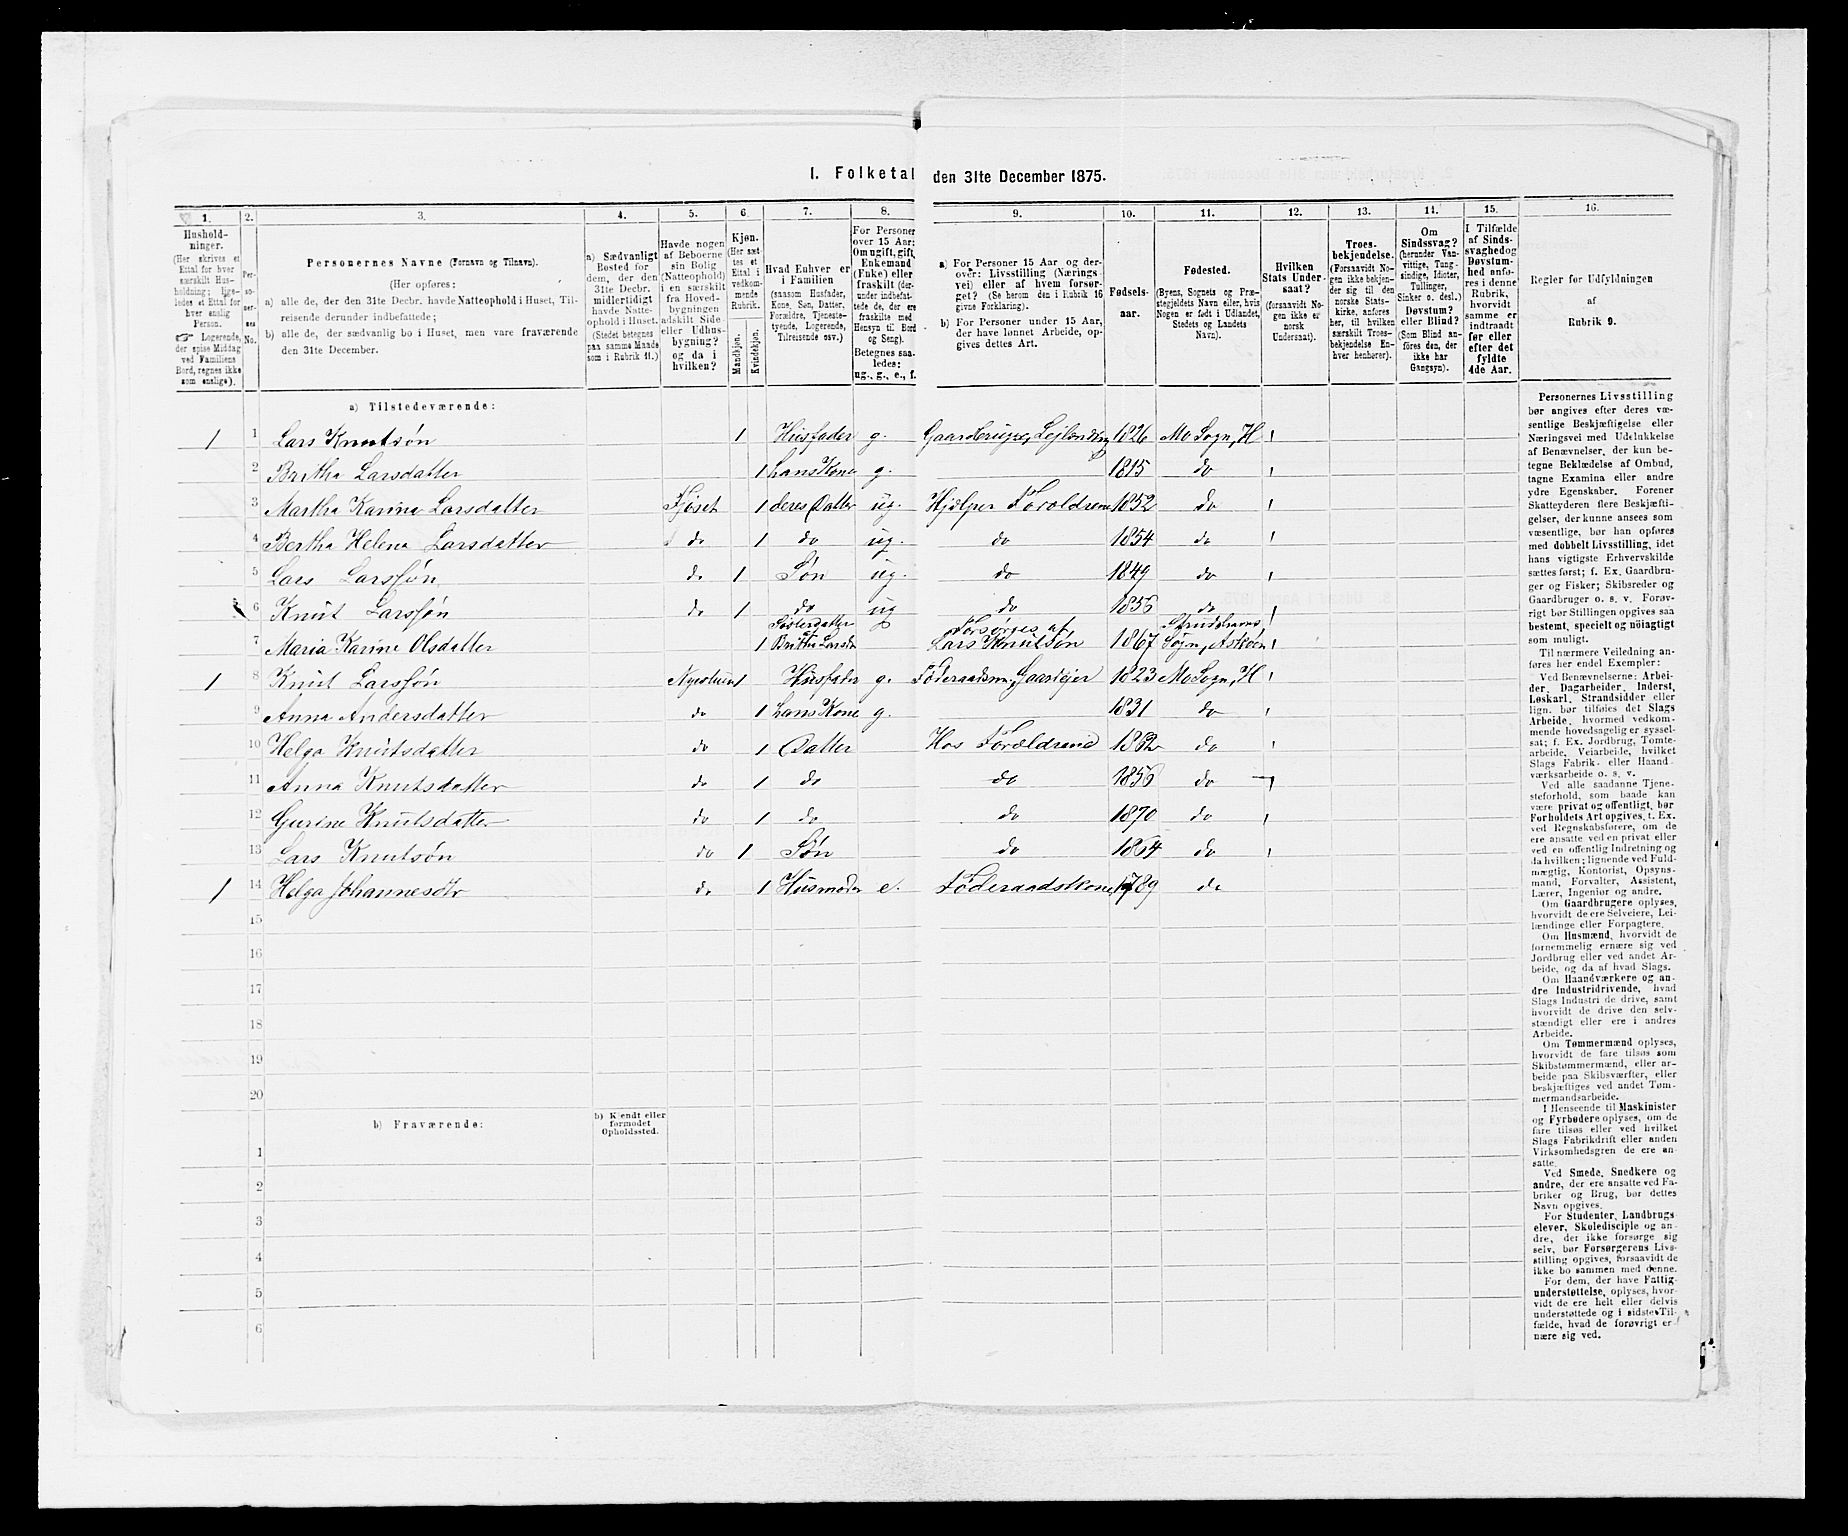 I. Folketal den 31te December 1875.
1. 2. 3. 4. 5. 6. 7. 8. 9. 10. 11. 12. 13. 14. 15. 16.
Husholdninger. (Her skrives et Ettal for hver særskilt Husholdning; ligeledes et Ettal for hver enslig Person. Logerende, der spise Middag ved Familiens Bord, regnes ikke som enslige).
Personernes No.
Personernes Navne (Fornavn og Tilnavn).
(Her opføres:
a) alle de, der den 31te Decbr. havde Natteophold i Huset, Tilreisende derunder indbefattede;
b) alle de, der sædvanlig bo i Huset, men vare fraværende den 31te December.
a) Sædvanligt Bosted for dem, der den 31te Decbr. midlertidigt havde Natteophold i Huset. (Stedet betegnes paa samme Maade som i Rubrik 11.)
Havde nogen af Beboerne sin Bolig (Natteophold) i en særskilt fra Hovedbygningen adskilt Side- eller Udhusbygning? og da i hvilken?
Kjøn. (Her sættes et Ettal i vedkommende Rubrik.
Mandkjøn. Kvindekjøn.
Hvad Enhver er i Familien (saasom Husfader, Kone, Søn, Datter, Forældre, Tjenestetyende, Logerende, Tilreisende osv.)
For Personer over 15 Aar: Om ugift, gift, Enkemand (Enke) eller fraskilt (derunder indbefattede de, der ere fraskilte med Hensyn til Bord og Seng). Betegnes saaledes: ug., g., e., f.
a) For Personer 15 Aar og derover: Livsstilling (Næringsvei) eller af hvem forsørget? (Se herom den i Rubrik 16 givne Forklaring).
b) For Personer under 15 Aar, der have lønnet Arbeide, opgives dettes Art.
Fødselsaar.
Fødested. (Byens, Sognets og Præstegjeldets Navn eller, hvis Nogen er født i Udlandet, Stedets og Landets Navn).
Hvilken Stats Undersaat? (forsaavidt Nogen ikke er norsk Undersaat).
Troesbekjendelse. (Forsaavidt Nogen ikke bekjender sig til den norske Statskirke, anføres her, til hvilken særskilt Troesbekjendelse Enhver henhører).
Om Sindssvag? (herunder Vanvittige, Tungsindige, Idioter, Sinker o. desl.) Døvstum? eller Blind? (Som Blind anføres den, der ikke har Gangsyn).
I Tilfælde af Sindssvaghed og Døvstumhed anføres i denne Rubrik, hvorvidt samme er indtraadt før eller efter det fyldte 4de Aar.
Regler før Udfyldningen af Rubrik 9.
a) Tilstedeværende:
1 1 Lars Knutsøn 1 Husfader g. Gaardbruger, Lejlænding 1826 Mo Sogn, H
2 Britha Larsdatter 1 hans Kone g. 1815 do
3 Martha Karina Larsdatter Fjøset 1 deres Datter ug. Hjelper Foroldrene 1852 do
4 Bertha Helena Larsdatter do 1 do ug. do 1854 do
5 Lars Larssøn do 1 Søn ug. do 1849 do
6 Knut Larssøn do 1 do ug do 1856 do
7 Maria Karine Olsdatter 1 Søsterdatter Forsørges af Lars Knutsøn 1867 Sogn, Askøen
1 8 Knut Larssøn 1 Husfader g. Føderaadsm., Gaardejer 1823 Mo Sogn, H
9 Anna Andersdatter do 1 hans Kone g. 1831 do
10 Helga Knutsdatter do 1 Datter Hos Forældrene 1862 do
11 Anna Knutsdatter do 1 do do 1856 do
12 Gurine Knutsdatter do 1 do do 1870 do
13 Lars Knutsøn do 1 Søn do 1864 do
1 14 Helga Johannesdtr do 1 Husmoder e. Føderaadskone 1789 do
15
16
17
18
19
20
b) Fraværende: b) Kjendt eller formodet Opholdssted.
1
2
3
4
5
6
Personernes Livsstilling
bør angives efter deres væ-
sentlige Beskjæftigelse eller
Næringsvei med Udelukkelse
af Benævnelser, der kun be-
tegne Beklædelse af Ombud,
tagne Examina eller andre
ydre Egenskaber. Forener
Skatteyderen flere Beskjæfti-
gelser, der kunne ansees som
væsentlige, bør han opføres
med dobbelt Livsstilling, idet
hans vigtigste Erhvervskilde
sættes først; f. Ex. Gaardbru-
ger og Fisker; Skibsreder og
Gaardbruger o. s. v. Forøv-
rigt bør Stillingen opgives saa
bestemt, specielt og nøiagtigt
som muligt.
Til nærmere Veiledning an-
føres her endel Exempler:
Ved Benævnelserne: Arbei-
der, Dagarbeider, Inderst,
Løskarl, Strandsidder eller
lign. bør tilføies det Slags
Arbeide, hvormed vedkom-
mende hovedsagelig er syssel-
sat; f. Ex. Jordbrug, Tomte-
arbeide, Veiarbeide, hvilket
Slags Fabrik- eller Haand-
værksarbeide o. s. v.
Ved alle saadanne Tjene-
steforhold, som baade kan
være privat og offentligt, bør
Forholdets Art opgives, f. Ex.
ved Regnskabsførere, om de
ere ansatte ved en privat eller
ved en offentlig Indretning og
da hvilken; lignende ved Fuld-
mægtig, Kontorist, Opsyns-
mand, Forvalter, Assistent,
Lærer, Ingeniør og andre.
Om Gaardbrugere oplyses,
hvorvidt de ere Selveiere, Lei-
lændinge eller Forpagtere.
Om Husmænd, hvorvidt de
fornemmelig ernære sig ved
Jordbrug eller ved andet Ar-
beide, og da af hvad Slags.
Om Haandværkere og an-
dre Industridrivende, hvad
Slags Industri de drive, samt
hvorvidt de drive den selv-
stændigt eller ere i andres
Arbeide.
Om Tømmermænd oplyses,
hvorvidt de fare tilsøs som
Skibstømmermænd, eller ar-
beide paa Skibsværfter, eller
beskjæftiges ved andet Tøm-
mermandsarbeide.
I Henseende til Maskinister
og Fyrbødere oplyses, om de
fare tilsøs eller ved hvilket
Slags Fabrikdrift eller anden
Virksomhedsgren de ere an-
satte.
Ved Smede, Snedkere og
andre, der ere ansatte ved Fa-
briker og Brug, bør dettes
Navn opgives.
For Studenter, Landbrugs-
elever, Skoledisciple og an-
dre, der ikke forsørge sig
selv, bør Forsørgerens Livs-
stilling opgives, forsaavidt de
ikke bo sammen med denne.
For dem, der have Fattig-
understøttelse, oplyses, hvor-
vidt de ere helt eller delvis
understøttede og i sidste Til-
fælde, hvad de forøvrigt er-
nære sig ved.